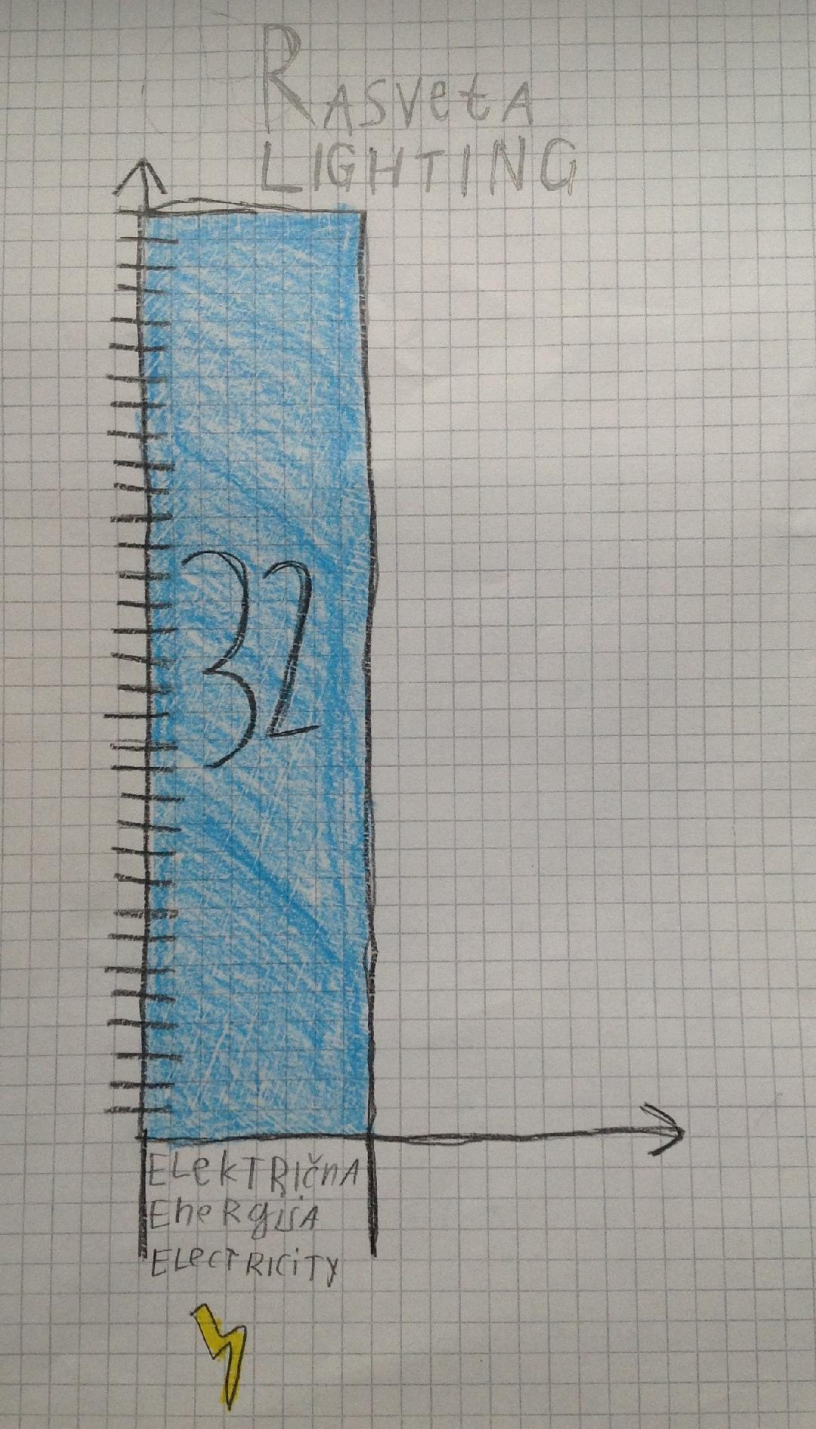 RASVetA
LIGHTING
32
ELekTRIčnA
EneRgijA
ELecTRICiTy